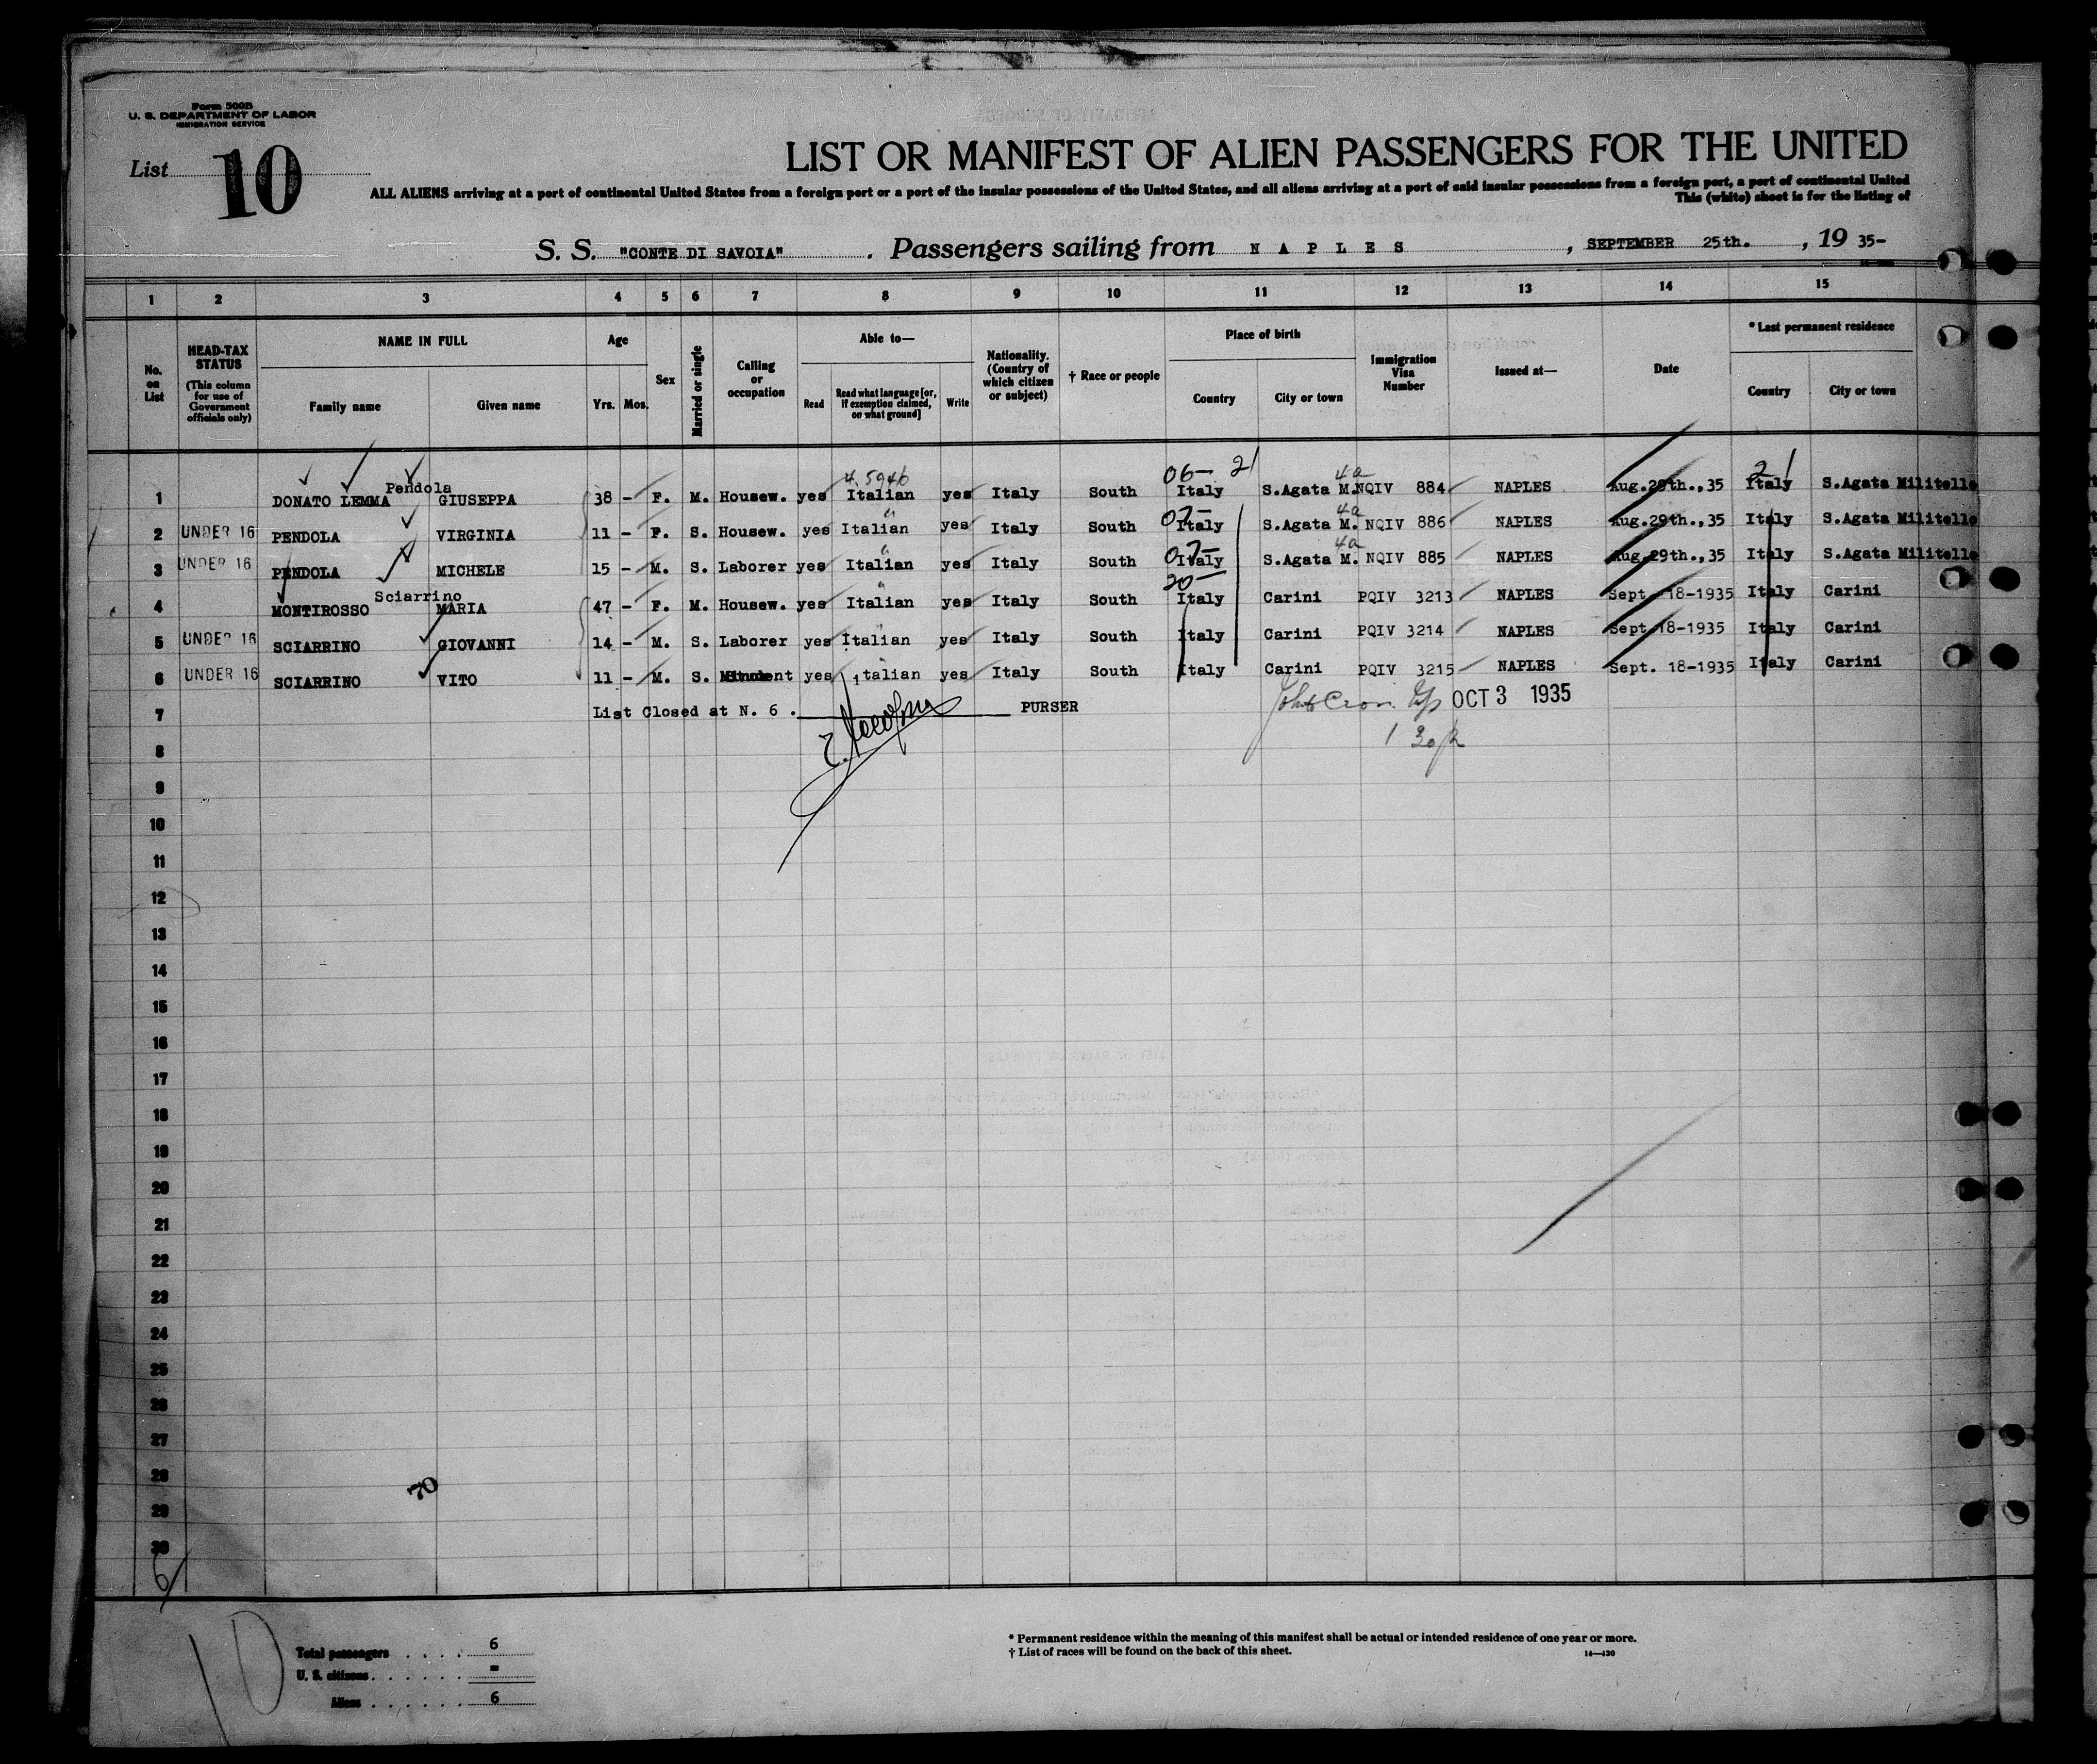 Form 500B
U. S. DEPARTMENT OF LABOR
IMMIGRATION SERVICE
List 10
LIST OR MANIFEST OF ALIEN PASSENGERS FOR THE UNITED
ALL ALIENS arriving at a port of continental United States from a foreign port or a port of the insular possessions of the United States, and all aliens arriving at a port of said insular possessions from a foreign port, a port of continental United
This (white) sheet is for the listing of
S. S. "CONTE DI SAVOIA" . Passengers sailing from N A P L E S , SEPTEMBER 25th. , 19 35-
1 2 3 4 5 6 7 8 9 10 11 12 13 14 15
No. on List
HEAD-TAX STATUS (This column for use of Government officials only)
NAME IN FULL
Family name Given name
Age
Yrs. Mos.
Sex
Married or single
Calling or occupation
Able to—
Read
Read what language [or, if exemption claimed, on what ground]
Write
Nationality. (Country of which citizen or subject)
† Race or people
Place of birth
Country City or town
Immigration Visa Number
Issued at—
Date
* Last permanent residence
Country City or town
4a 06- 21 21
Pendola
1 DONATO LEMMA GIUSEPPA 38 - F. M. Housew. yes Italian yes Italy South Italy S.Agata M. NQIV 884 NAPLES Aug.29th.,35 Italy S.Agata Militello
4a 07-
2 UNDER 16 PENDOLA VIRGINIA 11 - F. S. Housew. yes Italian yes Italy South Italy S.Agata M. NQIV 886 NAPLES Aug.29th.,35 Italy S.Agata Militello
4a 07-
3 UNDER 16 PENDOLA MICHELE 15 - M. S. Laborer yes Italian yes Italy South Italy S.Agata M. NQIV 885 NAPLES Aug.29th.,35 Italy S.Agata Militello
Sciarrino 20-
4 MONTIROSSO MARIA 47 - F. M. Housew. yes Italian yes Italy South Italy Carini PQIV 3213 NAPLES Sept. 18-1935 Italy Carini
5 UNDER 16 SCIARRINO GIOVANNI 14 - M. S. Laborer yes Italian yes Italy South Italy Carini PQIV 3214 NAPLES Sept 18-1935 Italy Carini
6 UNDER 16 SCIARRINO VITO 11 - M. S. yes Italian yes Italy South Italy Carini PQIV 3215 NAPLES Sept. 18-1935 Italy Carini
7 List Closed at N. 6 . PURSER OCT 3 1935
8
9
10
11
12
13
14
15
16
17
18
19
20
21
22
23
24
25
26
27
28 70
29
30
6
10
Total passengers . . . . 6
U. S. citizens . . . . . . -
Aliens . . . . . . 6
* Permanent residence within the meaning of this manifest shall be actual or intended residence of one year or more.
† List of races will be found on the back of this sheet.
14—430